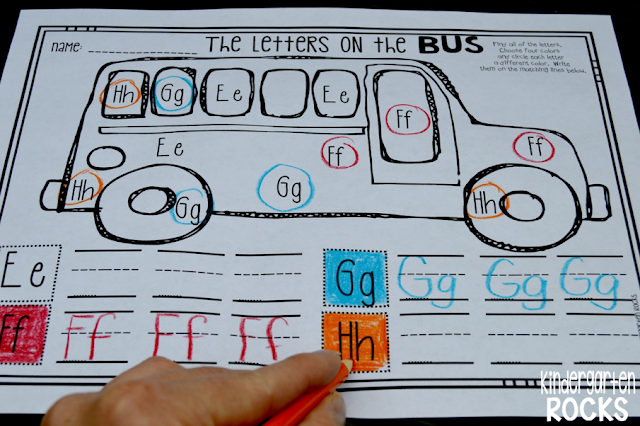 NAME: THE LETTERS ON THE BUS
Find all of the letters.
Choose four colors
and circle each letter
a different color. Write
them on the matching lines below.
Hh Gg Ee Ee
Ff
Ee Ff Ff
Hh Gg Gg Hh
Ee Gg Gg Gg Gg
Ff Ff Ff Ff Hh
kindergarten
ROCKS